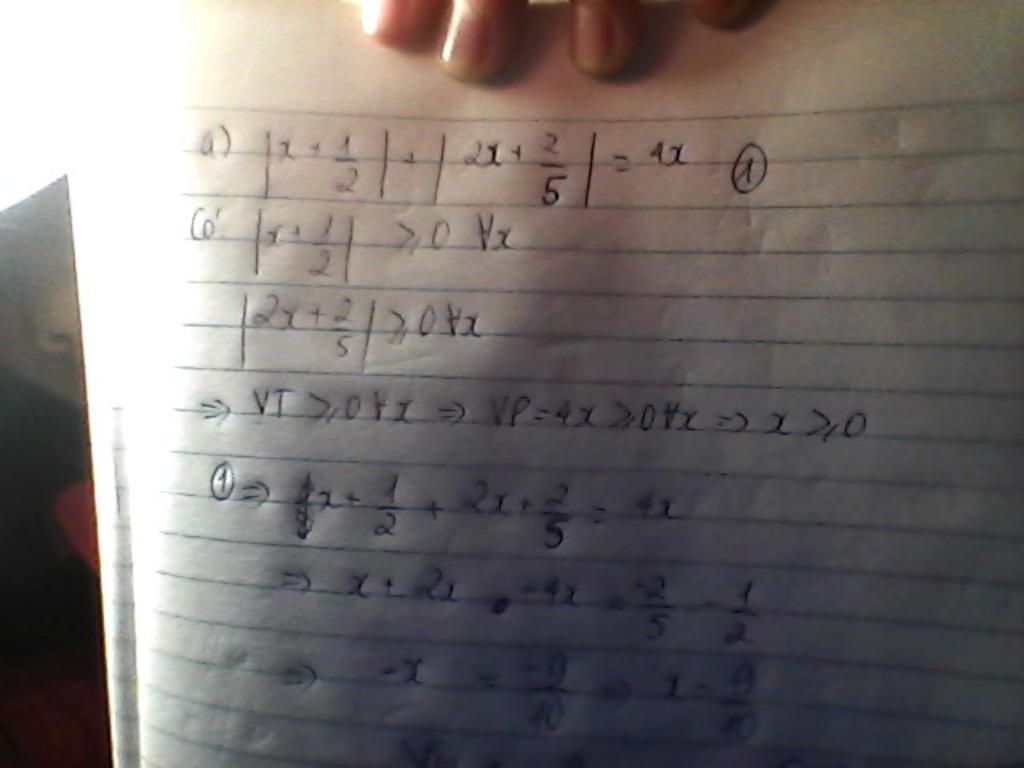 a) |x + 1/2| + |2x + 2/5| = 4x ①
Có |x + 1/2| ≥ 0 ∀x
|2x + 2/5| ≥ 0 ∀x
⇒ VT ≥ 0 ∀x ⇒ VP = 4x ≥ 0 ∀x ⇒ x ≥ 0
① ⇒ x + 1/2 + 2x + 2/5 = 4x
⇒ x + 2x - 4x = -2/5 - 1/2
⇒ -x = -9/10 ⇒ x = 9/10